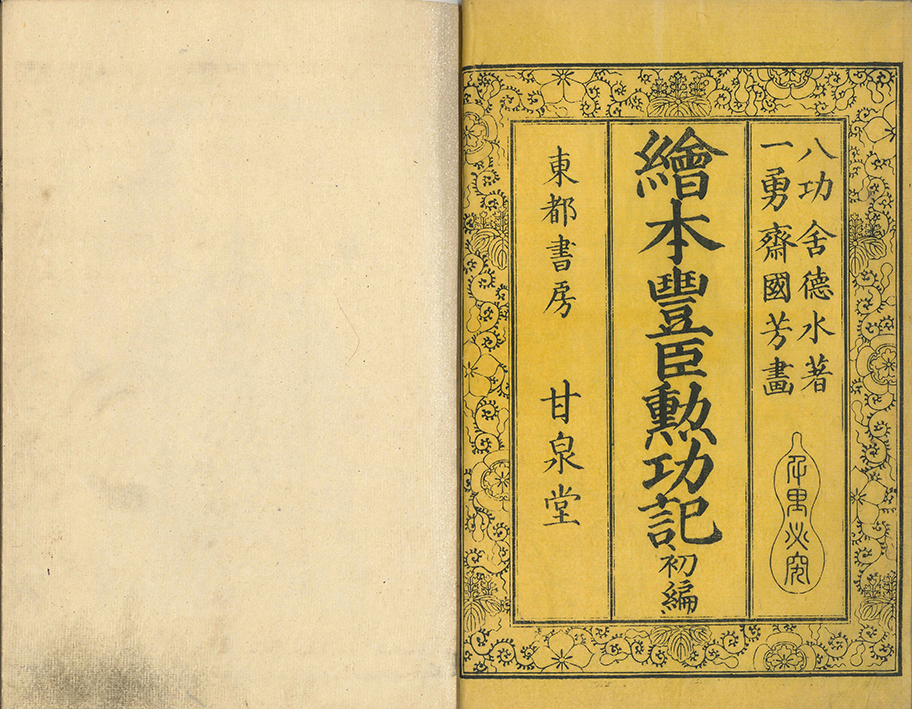 八功舍德水著
一勇齋國芳畫
千里必究
繪本豐臣勲功記 初編
東都書房 甘泉堂